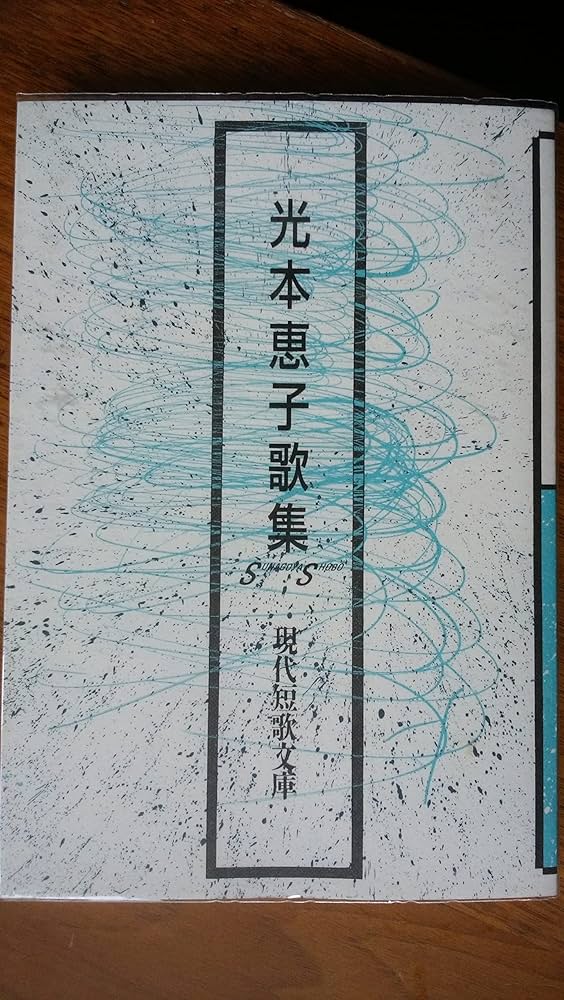 光本恵子歌集
SUNAGOYA SHOBO
現代短歌文庫